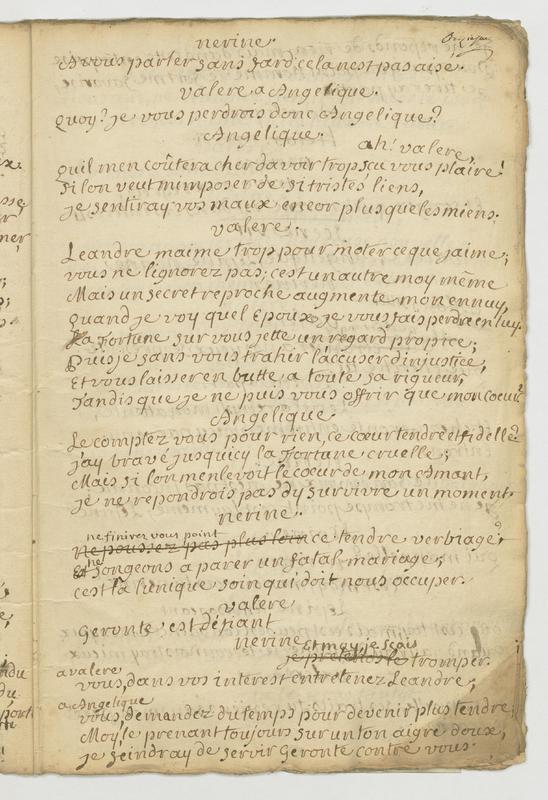 nerine.
A vous parler sans fard cela nest pas aisé.
valere a Angelique.
quoy? je vous perdrois donc Angelique?
Angelique.
ah! valere,
quil men coûtera cher davoir trop sçu vous plaire!
si lon veut mimposer de si tristes liens,
je sentiray vos maux encor plus que les miens.
valere.
Leandre maime trop pour môter ce que jaime;
vous ne lignorez pas; cest un autre moy même
Mais un secret reproche augmente mon ennuy,
quand je voy quel Epoux je vous fais perdre en luy.
La fortune sur vous jette un regard propice;
Puis je sans vous trahir laccuser dinjustice,
Et vous laisser en butte a toute sa rigueur,
Tandis que je ne puis vous offrir que mon coeur?
Angelique.
Le comptez vous pour rien, ce coeur tendre et fidelle?
j'ay bravé jusquicy la fortune cruelle;
Mais si lon menlevoit le coeur de mon Amant,
je ne repondrois pas d'y survivre un moment.
nerine.
ne finirez vous point
Ne poussez pas plus loin ce tendre verbiage?
ne songeons a parer un fatal mariage;
cest la lunique soin qui doit nous occuper.
valere
Geronte est défiant
nerine
Et moy, je sçais
je pretends le tromper.
a valere
vous, dans vos interest entretenez Leandre;
a Angelique
vous, demandez du temps pour devenir plus tendre;
Moy, le prenant toujours sur un ton aigre doux,
je feindray de servir Geronte contre vous.